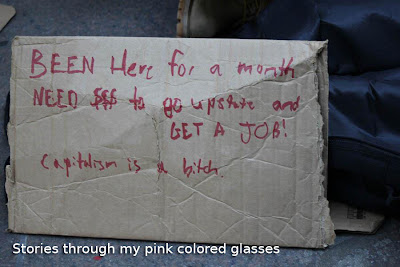 BEEN Here for a month
NEED $$$ to go upstate and
GET A JOB!
Capitalism is a bitch.
Stories through my pink colored glasses